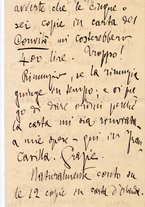 avverto che le cinque o
sei copie in carta del
Convito mi costerebbero
400 lire. Troppo!
Rinunzio, se la rinunzia
giunge in tempo, e ti
di dare ordini perché
la carta mi sia
a mie spese, qui in
Grazie.
Naturalmente conto su
le 12 copie in carta d'Olanda.